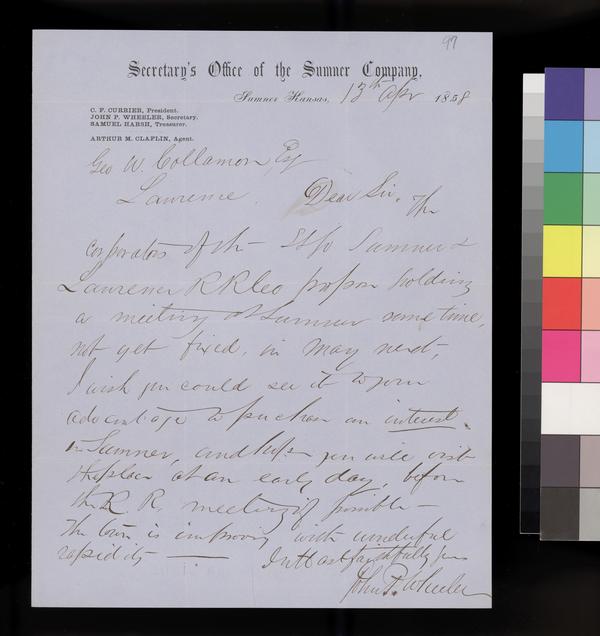 97
Secretary's Office of the Sumner Company,
Sumner Kansas, 13th Apr 1858
C. F. CURRIER, President.
JOHN P. WHEELER, Secretary.
SAMUEL HARSH, Treasurer.
ARTHUR M. CLAFLIN, Agent.
Geo W. Collamore, Esq
Lawrence. Dear Sir, The
corporators of the St Jo Sumner &
Lawrence R R Co propose holding
a meeting at Sumner some time,
not yet fixed, in May next,
I wish you could see it to your
advantage to purchase an interest
in Sumner, and hope you will visit
the place at an early day, before
the R. R. meeting if possible —
The town is improving with wonderful
rapidity — faithfully yours
John P. Wheeler